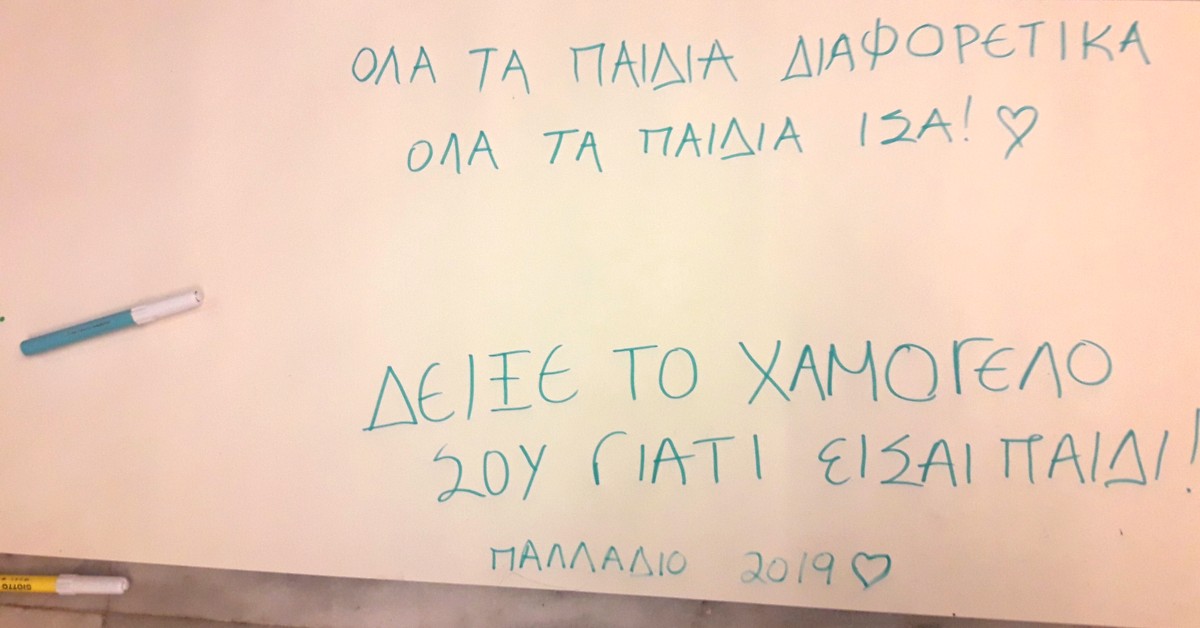 ΟΛΑ ΤΑ ΠΑΙΔΙΑ ΔΙΑΦΟΡΕΤΙΚΑ
ΟΛΑ ΤΑ ΠΑΙΔΙΑ ΙΣΑ! ♡
ΔΕΙΞΕ ΤΟ ΧΑΜΟΓΕΛΟ
ΣΟΥ ΓΙΑΤΙ ΕΙΣΑΙ ΠΑΙΔΙ!
ΠΑΛΛΑΔΙΟ 2019 ♡
GIOTTO